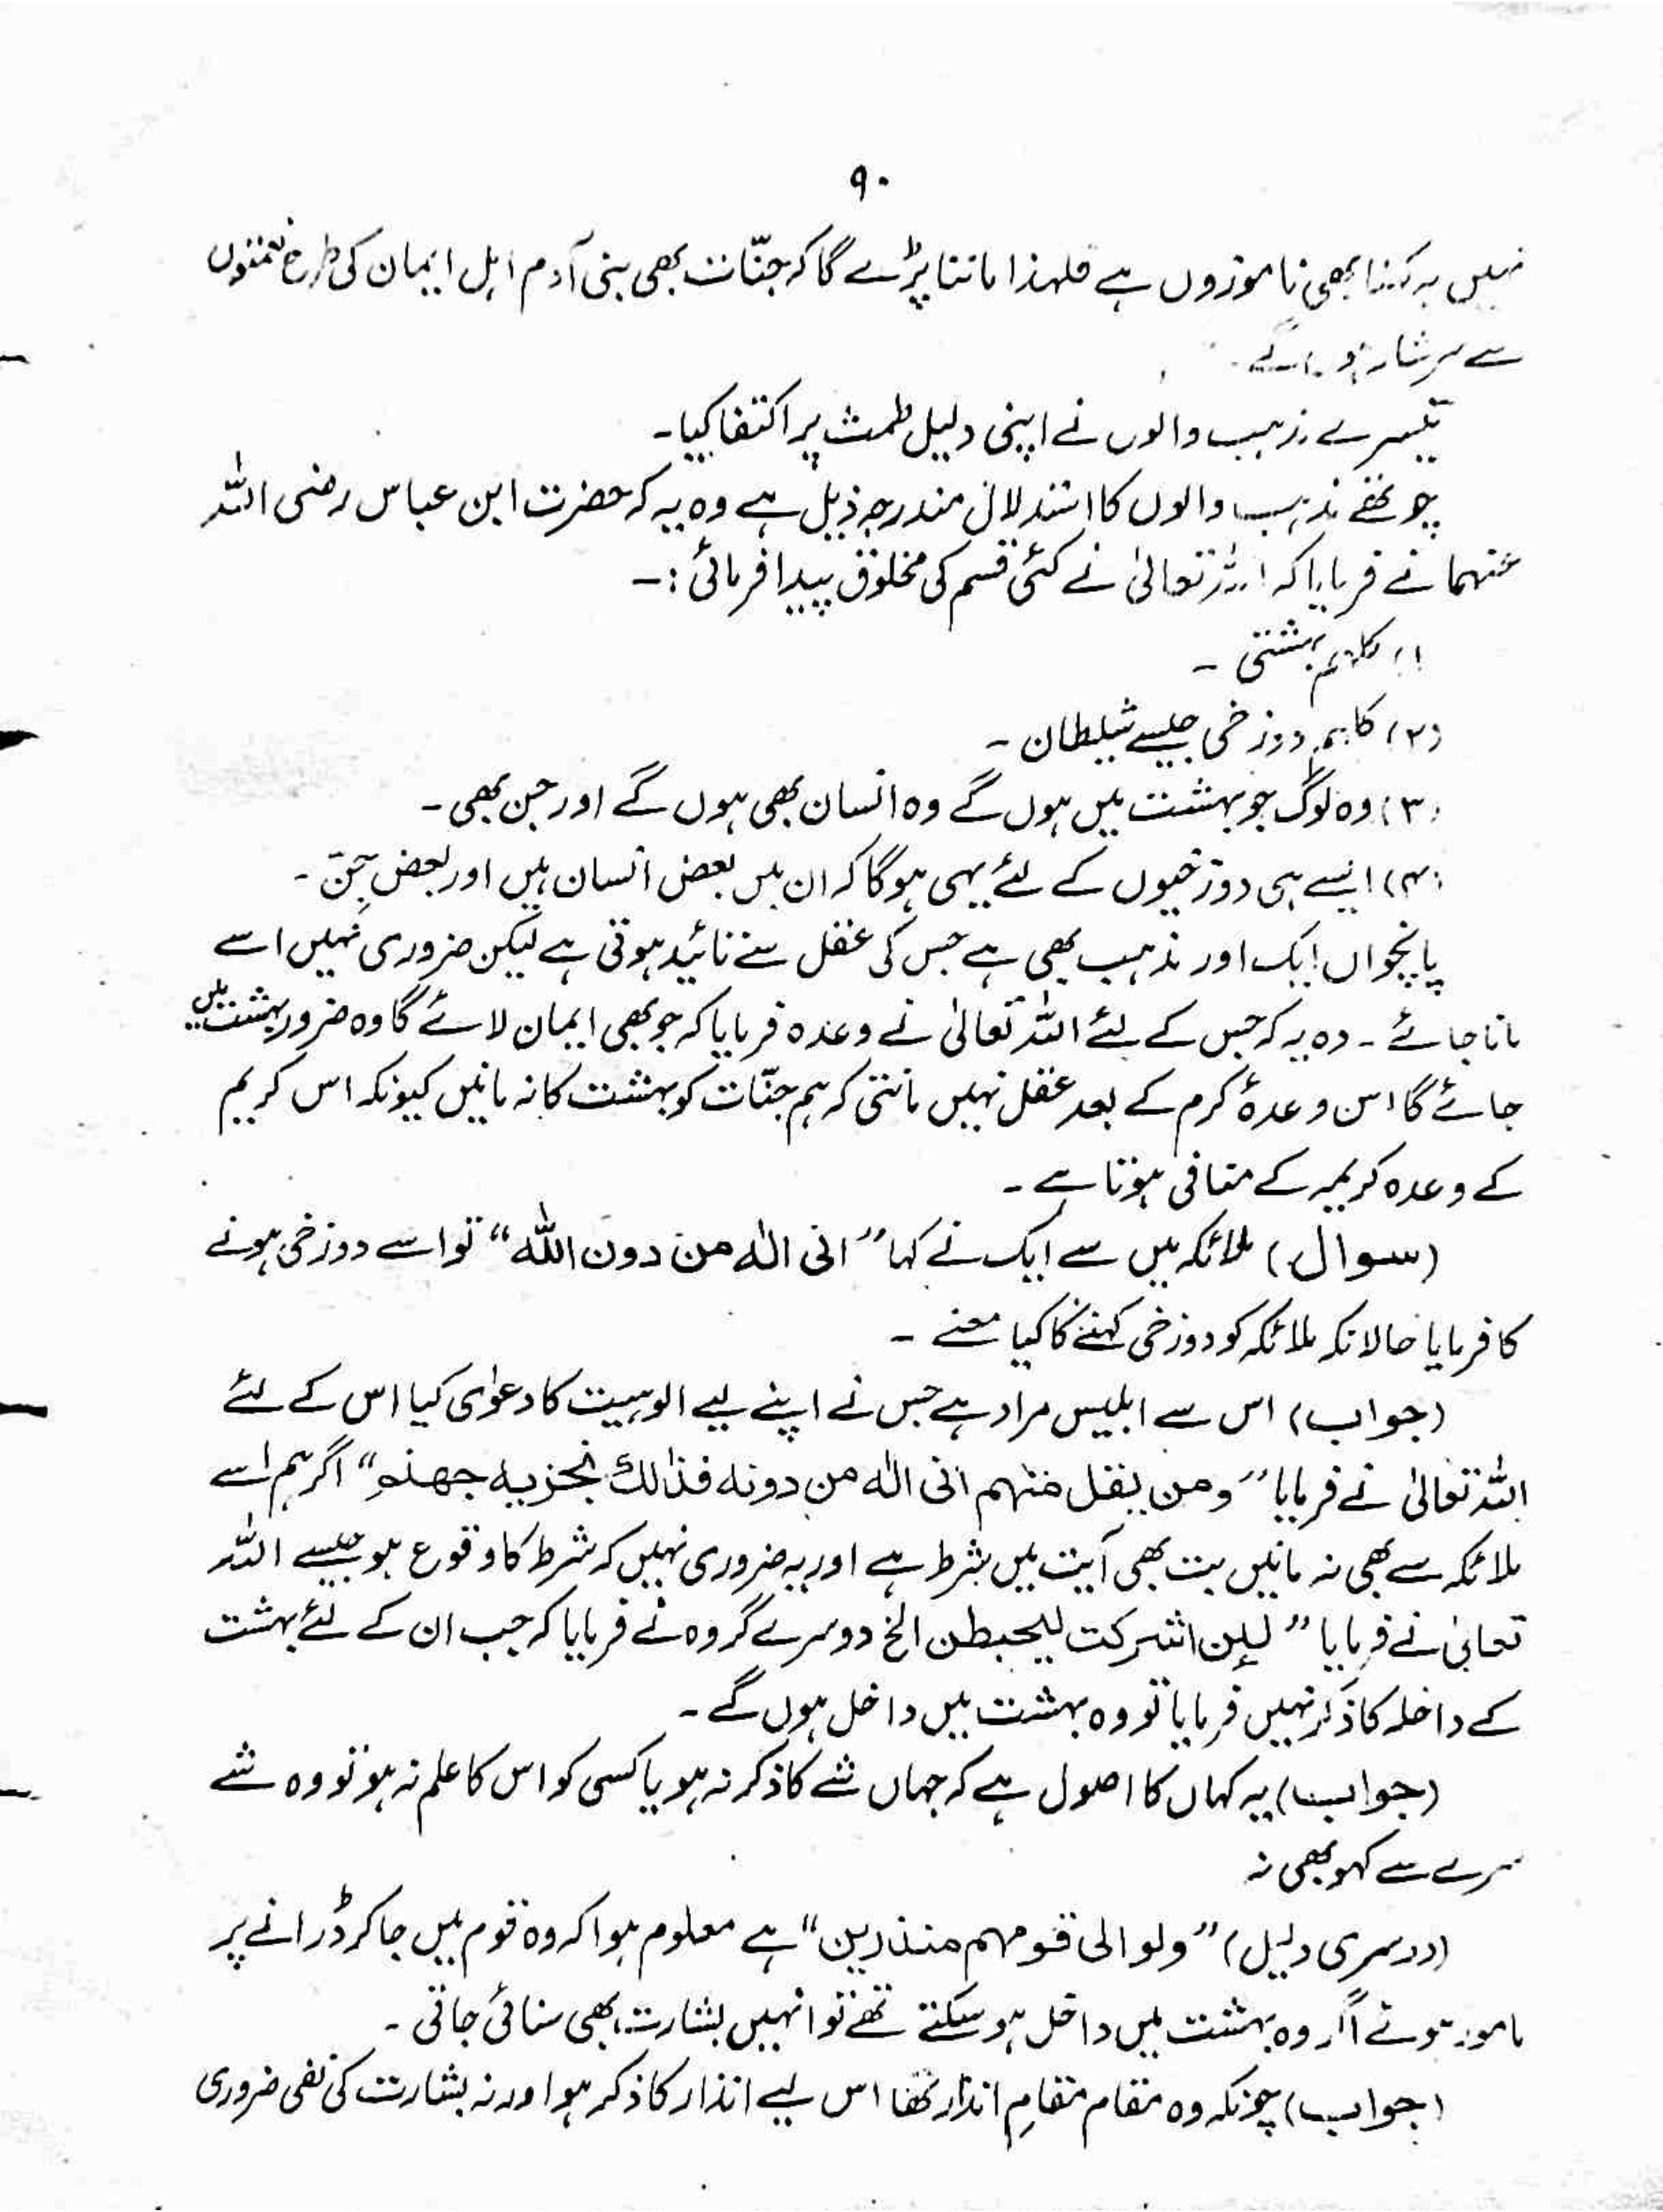 ۹۰
نہیں یہ کہنا بھی ناموزوں ہے فلہذا ماننا پڑے گا کہ جنّات بھی بنی آدم اہل ایمان کی طرح نعمتوں
سے سرشار ہوں گے۔
تیسرے مذہب والوں نے اپنی دلیل طمث پر اکتفا کیا۔
چوتھے مذہب والوں کا استدلال مندرجہ ذیل ہے وہ یہ کہ حضرت ابن عباس رضی اللہ
عنہما نے فرمایا کہ اللہ تعالیٰ نے کئی قسم کی مخلوق پیدا فرمائی :۔
(۱) کلہم بہشتی ۔
(۲) کلہم دوزخی جیسے شیطان ۔
(۳) وہ لوگ جو بہشت میں ہوں گے وہ انسان بھی ہوں گے اور جن بھی ۔
(۴) ایسے ہی دوزخیوں کے لئے یہی ہوگا کہ ان میں بعض انسان ہیں اور بعض جِنّ ۔
پانچواں ایک اور مذہب بھی ہے جس کی عقل سے تائید ہوتی ہے لیکن ضروری نہیں اسے
مانا جائے ۔ وہ یہ کہ جس کے لئے اللہ تعالیٰ نے وعدہ فرمایا کہ جو بھی ایمان لائے گا وہ ضرور بہشت میں
جائے گا اس وعدۂ کرم کے بعد عقل نہیں مانتی کہ ہم جنّات کو بہشت کا نہ مانیں کیونکہ اس کریم
کے وعدہ کریمہ کے منافی ہوتا ہے ۔
(سوال) ملائکہ میں سے ایک نے کہا ”انی الٰہ من دون اللہ“ تو اسے دوزخی ہونے
کا فرمایا حالانکہ ملائکہ کو دوزخی کہنے کا کیا معنے ۔
(جواب) اس سے ابلیس مراد ہے جس نے اپنے لیے الوہیت کا دعوٰی کیا اس کے لئے
اللہ تعالیٰ نے فرمایا ”ومن یقل منہم انی الٰہ من دونہ فذالک نجزیہ جھنم“ اگر ہم اسے
ملائکہ سے بھی نہ مانیں تب بھی آیت میں شرط ہے اور یہ ضروری نہیں کہ شرط کا وقوع ہو جیسے اللہ
تعالیٰ نے فرمایا ” لئن اشرکت لیحبطن الخ دوسرے گروہ نے فرمایا کہ جب ان کے لئے بہشت
کے داخلہ کا ذکر نہیں فرمایا تو وہ بہشت میں داخل ہوں گے ۔
(جواب) یہ کہاں کا اصول ہے کہ جہاں شے کا ذکر نہ ہو یا کسی کو اس کا علم نہ ہو تو وہ شے
سرے سے کہو بھی نہ
(دوسری دلیل) ”ولوا الی قومہم منذرین“ ہے معلوم ہوا کہ وہ قوم میں جا کر ڈرانے پر
مامور ہوتے اگر وہ بہشت میں داخل ہو سکتے تھے تو انہیں بشارت بھی سنائی جاتی ۔
(جواب) چونکہ وہ مقام مقامِ انذار تھا اس لیے انذار کا ذکر ہوا ورنہ بشارت کی نفی ضروری